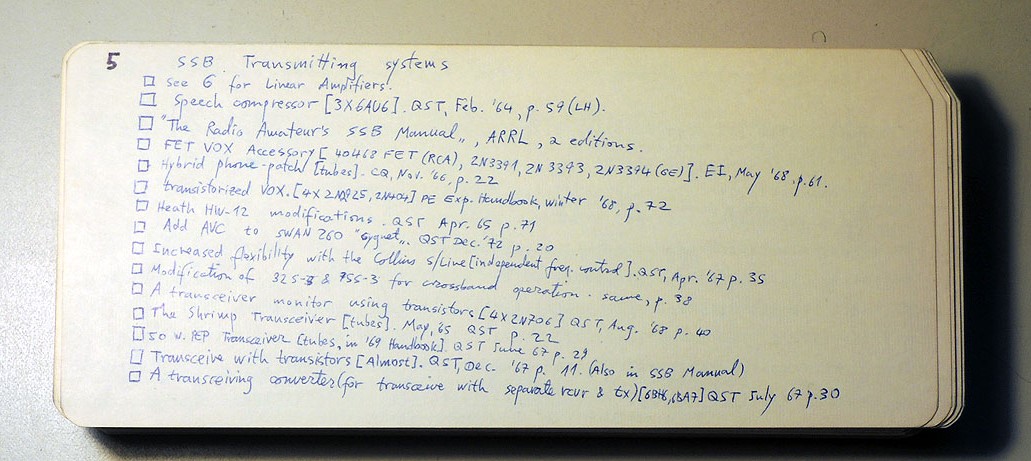 5 SSB Transmitting systems
☐ see 6 for Linear Amplifiers.
☐ Speech compressor [3X6AU6]. QST, Feb. '64, p. 59 (LH).
☐ "The Radio Amateur's SSB Manual„, ARRL, 2 editions.
☐ FET VOX Accessory [40468 FET (RCA), 2N3391, 2N3393, 2N3394 (GE)]. EI, May '68. p.61.
☐ Hybrid phone-patch [tubes]. CQ, Nov. '66, p. 22
☐ transistorized VOX. [4X 2N2925, 2N404] PE Exp. Handbook, winter '68, p. 72
☐ Heath HW-12 modifications. QST Apr. 65 p. 71
☐ Add AVC to SWAN 260 "Cygnet„. QST Dec. '72 p. 20
☐ Increased flexibility with the Collins S/Line [independent freq. control]. QST, Apr. '67 p. 35
☐ Modification of 32S-3 & 75S-3 for crossband operation. same, p. 38
☐ A transceiver monitor using transistors [4X2N706] QST, Aug. '68 p. 40
☐ The Shrimp Transceiver [tubes]. May, '65 QST p. 22
☐ 50 W. PEP Transceiver [tubes, in '69 Handbook]. QST June 67 p. 29
☐ Transceive with transistors [Almost]. QST, Dec. '67 p. 11. (Also in SSB Manual)
☐ A transceiving converter (for transceive with separate rcvr & tx) [6BH6, 6BA7] QST July 67 p. 30